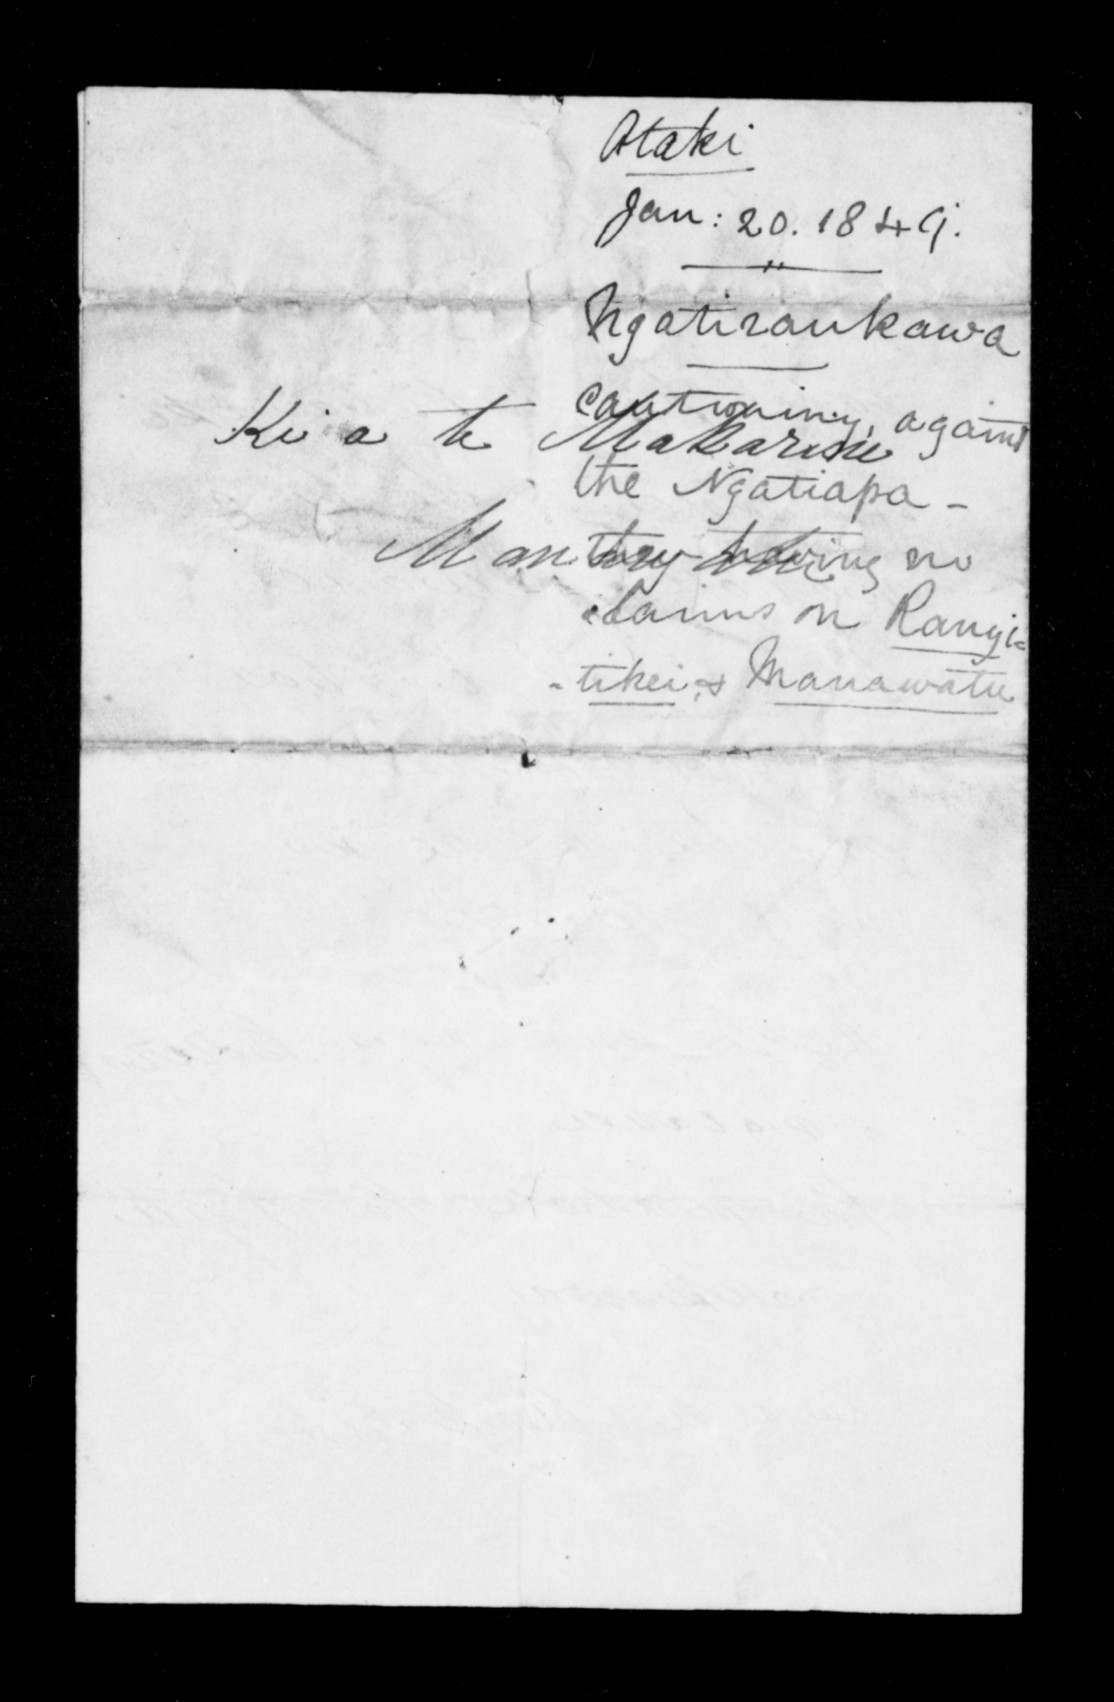 Otaki
Jan: 20. 1849.
Ngatiraukawa
cautioning against
Ki a te Makarini
the Ngatiapa -
they having no
claims on Rangi=
- tikei, & Manawatu